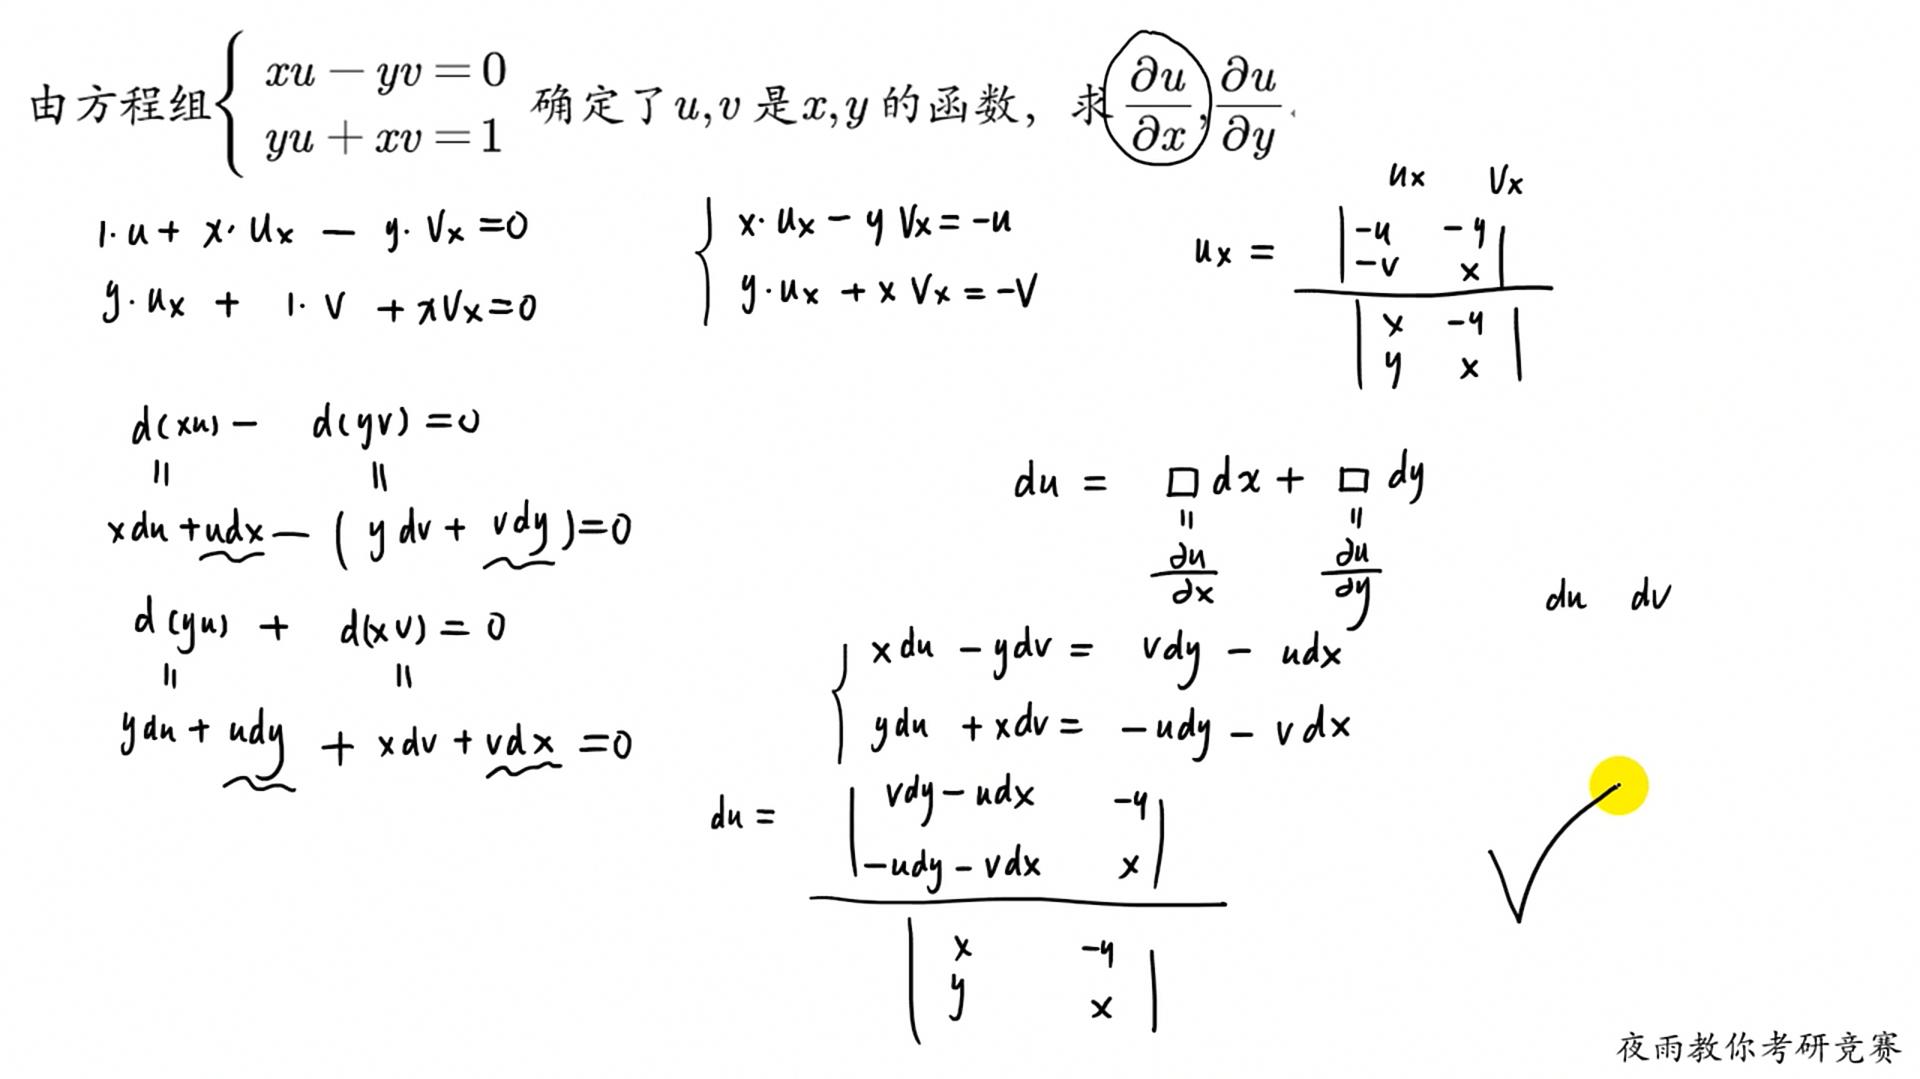 由方程组 { xu − yv = 0
yu + xv = 1 确定了 u,v 是 x,y 的函数，求 ∂u/∂x, ∂u/∂y.
1·u + x·ux − y·Vx = 0
y·ux + 1·V + xVx = 0
{ x·ux − y Vx = −u
y·ux + x Vx = −V
ux Vx
ux = | −u −y |
| −v x |
| x −y |
| y x |
d(xu) − d(yv) = 0
= =
xdu + udx − ( y dv + vdy ) = 0
d(yu) + d(xv) = 0
= =
ydu + udy + xdv + vdx = 0
du = □ dx + □ dy
= =
∂u/∂x ∂u/∂y
du dv
{ xdu − ydv = vdy − udx
ydu + xdv = −udy − vdx
du = | vdy − udx −y |
| −udy − vdx x |
| x −y |
| y x |
√
夜雨教你考研竞赛